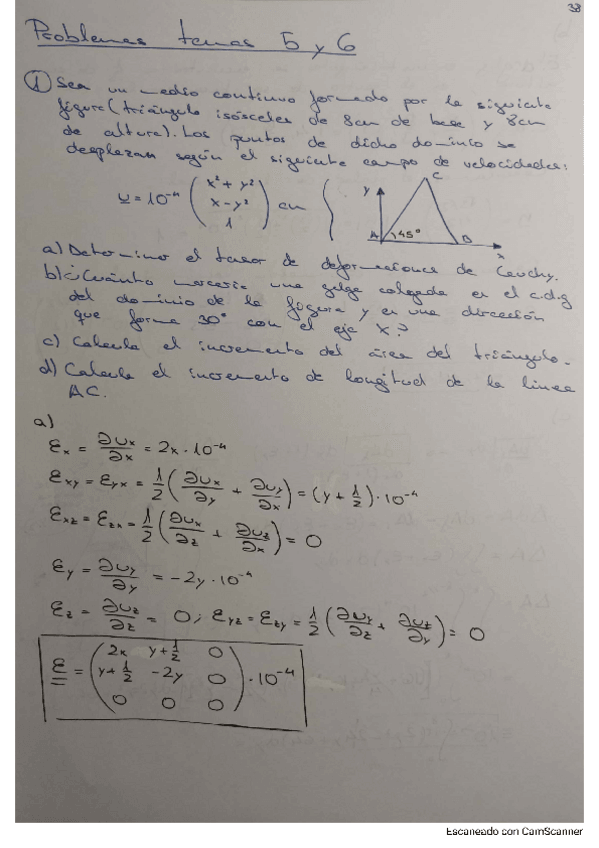 38
Problemas temas 5 y 6
① Sea un medio continuo formado por la siguiente
figura (triángulo isósceles de 8cm de base y 8cm
de altura). Los puntos de dicho dominio se
desplazan según el siguiente campo de velocidades:
u = 10⁻⁴ (x² + y² ; x - y² ; 1) cm
y C A 45° B x
a) Determina el tensor de deformaciones de Cauchy.
b) ¿Cuánto una galga colgada en el c.d.g
del dominio de la figura y en una dirección
que forma 30° con el eje X?
c) Calcula el incremento del área del triángulo.
d) Calcula el incremento de longitud de la línea
AC.
a)
εx = ∂ux/∂x = 2x·10⁻⁴
εxy = εyx = 1/2 (∂ux/∂y + ∂uy/∂x) = (y + 1/2)·10⁻⁴
εxz = εzx = 1/2 (∂ux/∂z + ∂uz/∂x) = 0
εy = ∂uy/∂y = -2y·10⁻⁴
εz = ∂uz/∂z = 0; εyz = εzy = 1/2 (∂uy/∂z + ∂uz/∂y) = 0
2x y+1/2 0
ε = y+1/2 -2y 0 ·10⁻⁴
0 0 0
Escaneado con CamScanner